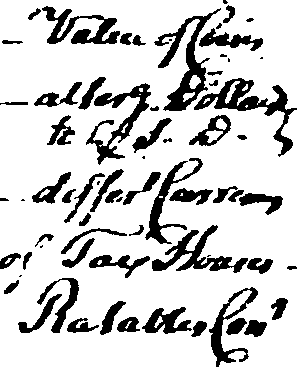 - Value of Coins
- alterg. Dollars
to L. S. D.
- differt Currency
of Tax Houses -
Ratables Cont